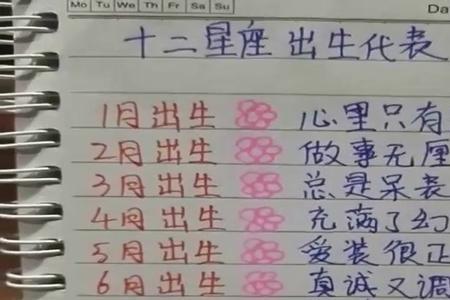 Mo Tu We Th Fr Sa Su Da
十二星座 出生代表
1月出生 心里只有
2月出生 做事无厘
3月出生 总是呆表
4月出生 充满了幻
5月出生 爱装很正
6月出生 真诚又调